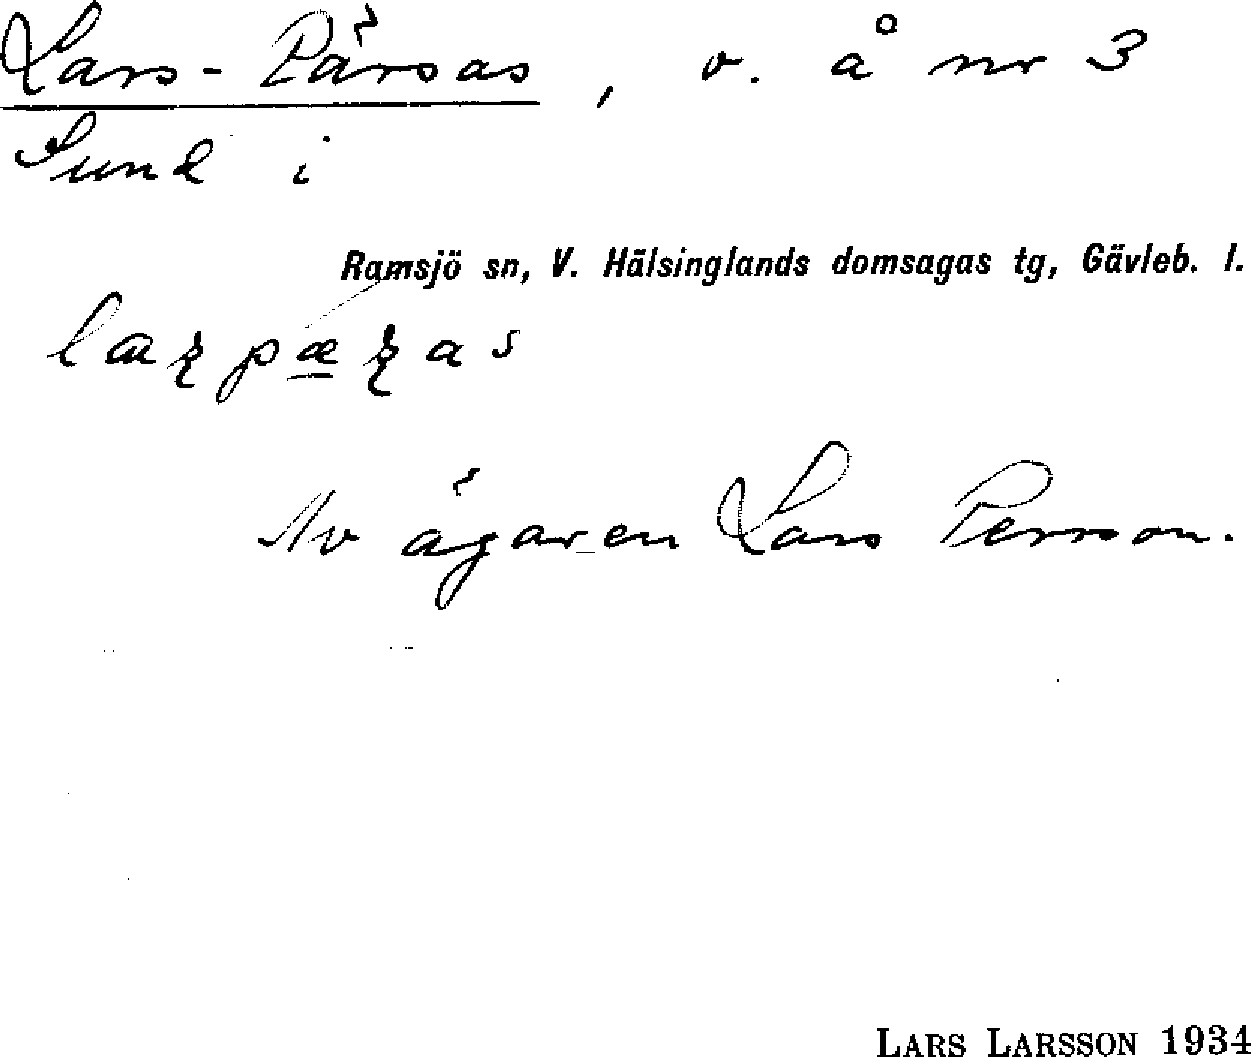 Lars-Pärsas, v. å nr 3
Sund i
Ramsjö sn, V. Hälsinglands domsagas tg, Gävleb. l.
Av ägaren Lars Person.
LARS LARSSON 1934